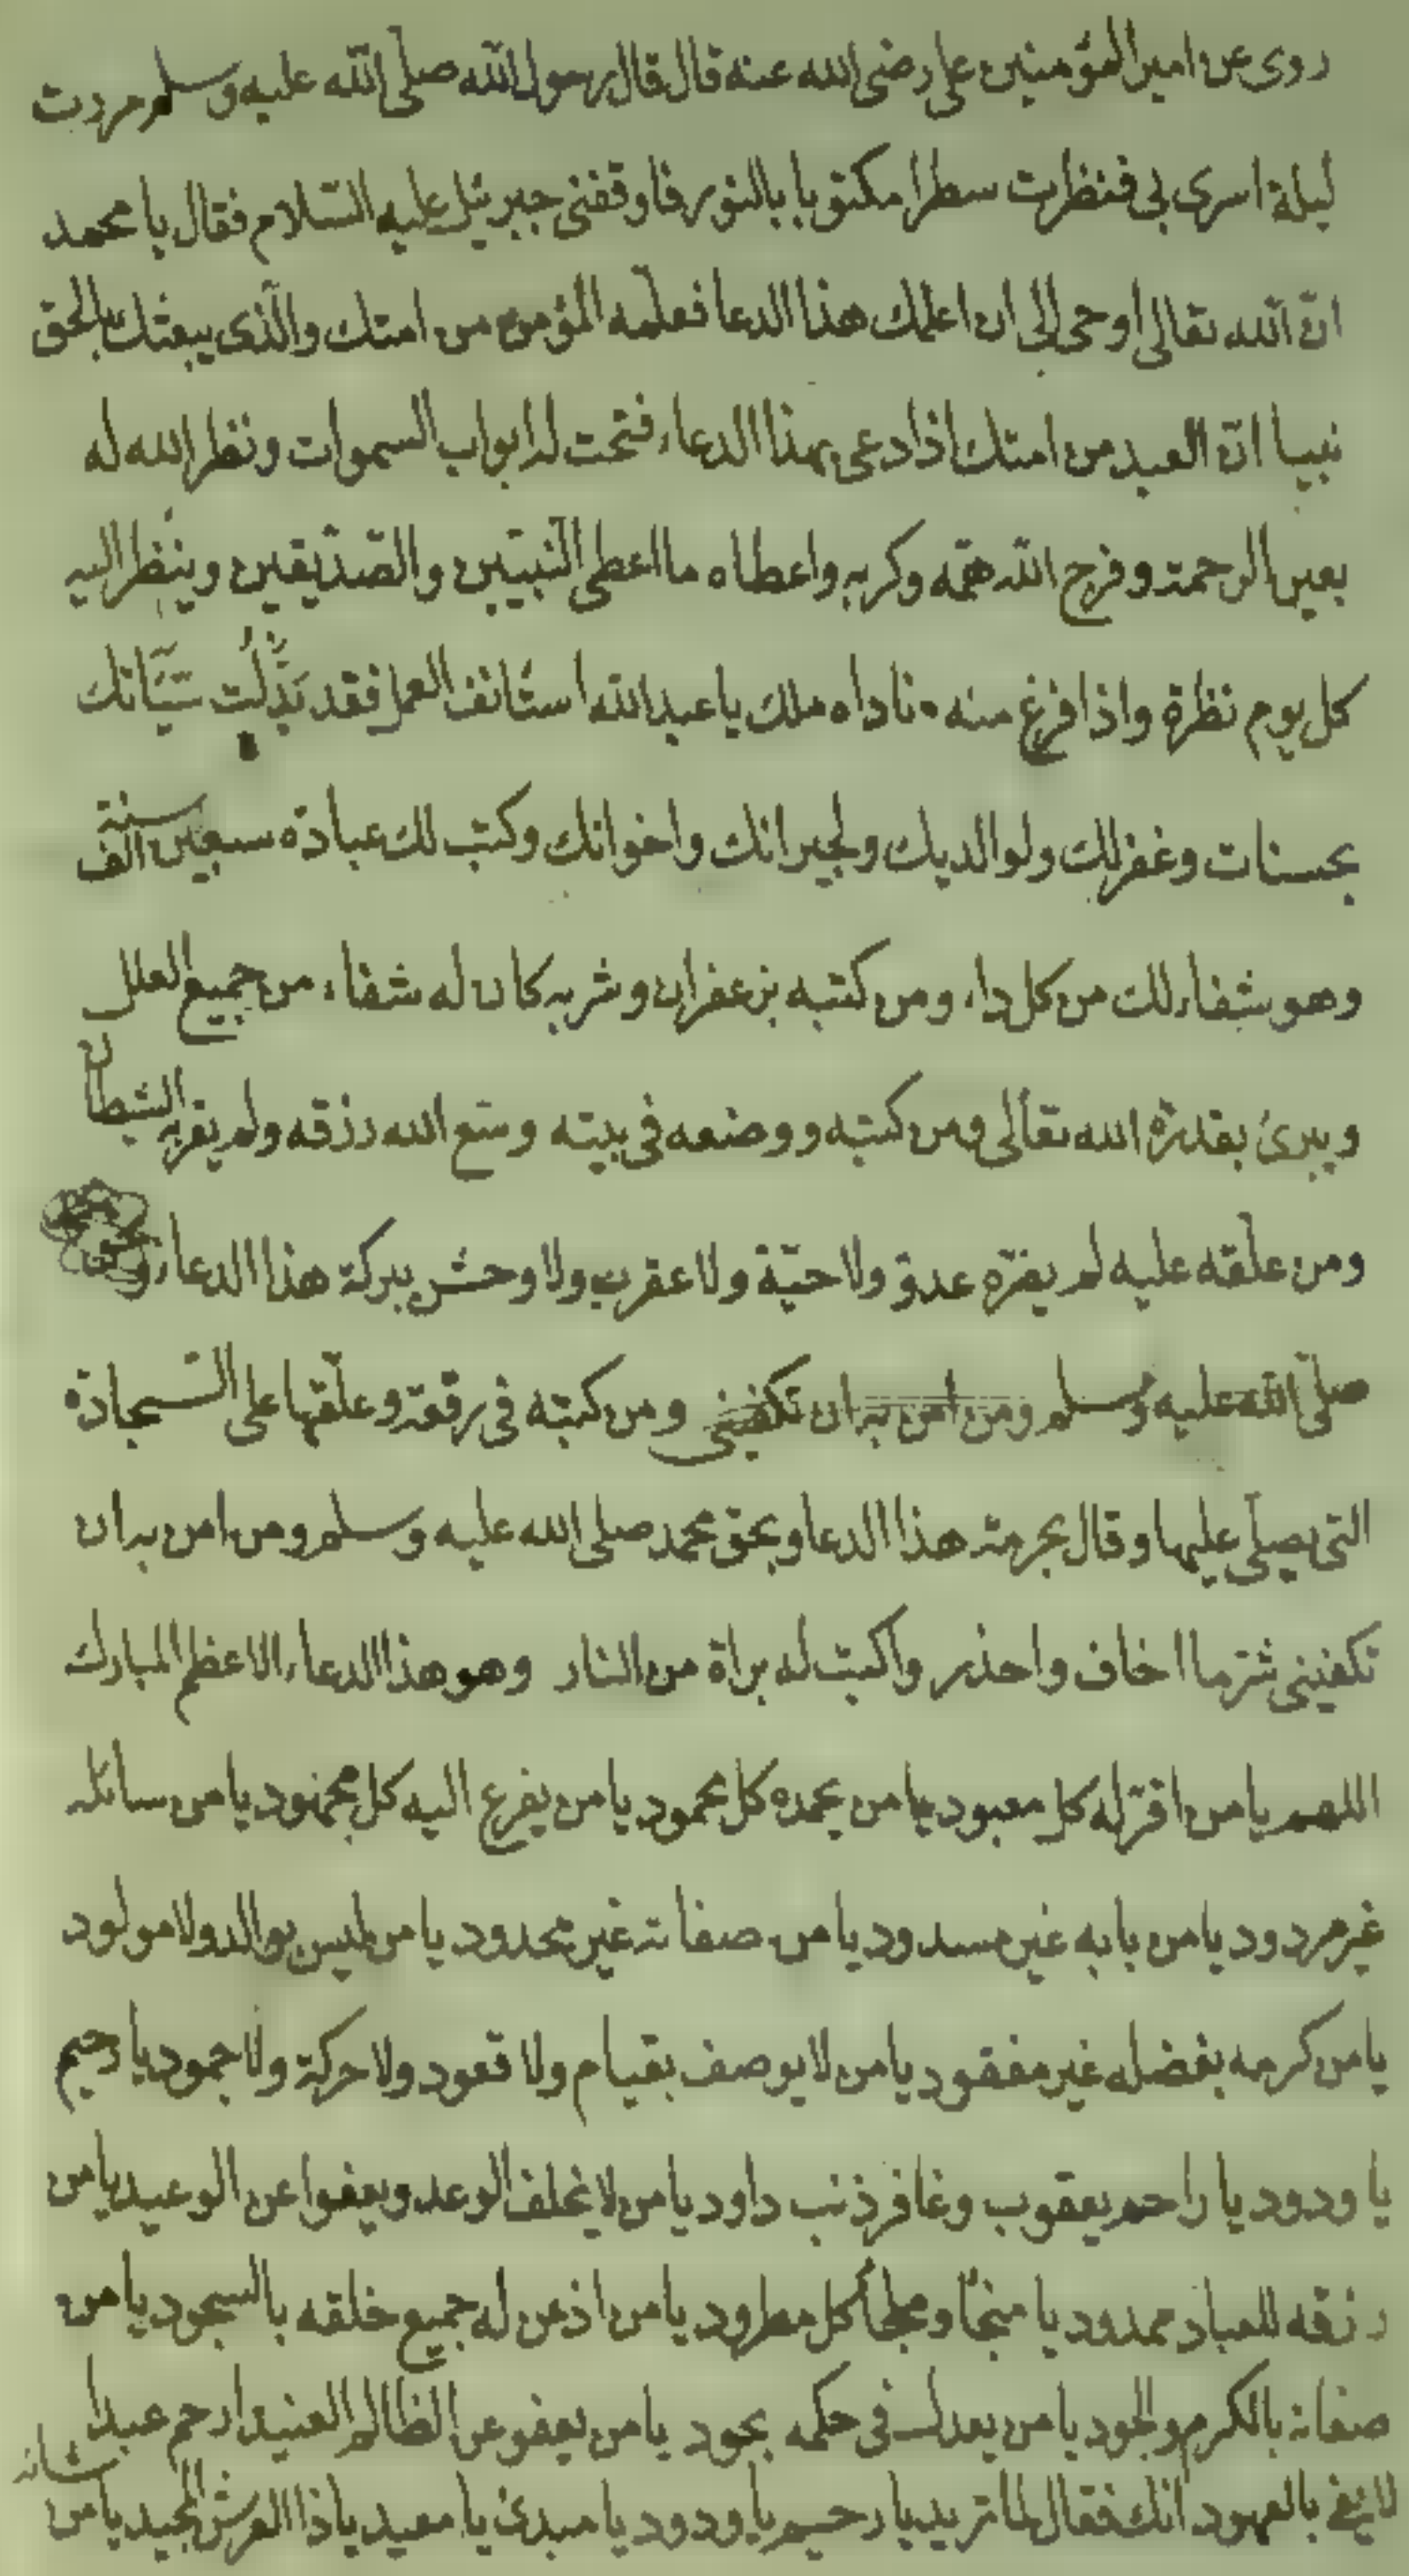 روى عن امير المؤمنين على رضى الله عنه قال قال رسول الله صلى الله عليه وسلم مررت
ليلة اسرى بى فنظرت سطرا مكتوبا بالنور فاوقفنى جبرئيل عليه السلام فقال يا محمد
انّ الله تعالى اوحى الى ان اعلمك هذا الدعا فعلمه المؤمن من امتك والّذى يبعثك بالحق
نبيا انّ العبد من امتك اذا دعى بهذا الدعاء فتحت له ابواب السموات ونظر الله له
بعين الرحمة وفرج الله همّه وكربه واعطاه ما اعطى النّبيّين والصّدّيقين وينظر اليه
كل يوم نظرة واذا فرغ منه ناداه ملك يا عبد الله استانف العمل فقد بَدِّلَت سَيّاتك
بحسنات وغفر لك ولوالديك ولجيرانك واخوانك وكتب لك عبادة سبعين الف سنة
وهو شفاء لك من كل داء ومن كتبه بزعفران وشربه كان له شفاء من جميع العلل
ويبرئ بقدرة الله تعالى ومن كتبه ووضعه فى بيته وسّع الله رزقه ولم يقربه الشيطان
ومن علّقه عليه لم يضرّه عدوّ ولا حيّة ولا عقرب ولا وحش ببركة هذا الدعاء
صلّى الله عليه وسلم ومن امن به ان تكفينى ومن كتبه فى رقعة وعلّقها على السّجادة
التى يصلّى عليها وقال بحرمة هذا الدعا وبحق محمد صلى الله عليه وسلم ومن امن به ان
تكفينى شرّ ما اخاف واحذر واكتب له براة من النار وهو هذا الدعاء الاعظم المبارك
اللهم يا من اقرّ له كل معبود يا من يحمده كل محمود يا من يفزع اليه كل مجهود يا من سائله
غير مردود يا من بابه غير مسدود يا من صفاته غير محدود يا من ليس بوالد ولا مولود
يا من كرمه بفضله غير مفقود يا من لا يوصف بقيام ولا قعود ولا حركة ولا جمود يا رحيم
يا ودود يا راحم يعقوب وغافر ذنب داود يا من لا يخلف الوعد ويعفوا عن الوعيد يا من
رزقه للعباد ممدود يا منجأ وملجأ كل مطرود يا من اذعن له جميع خلقه بالسجود يا من
صفاته بالكرم والجود يا من يعدل فى حكمه بجود يا من يعفو عن الظالم العنيد ارحم عبدا
بالعهود انك فعّال لما تريد يا رحيم يا ودود يا مبدئ يا معيد يا ذا العرش المجيد يا من شانه